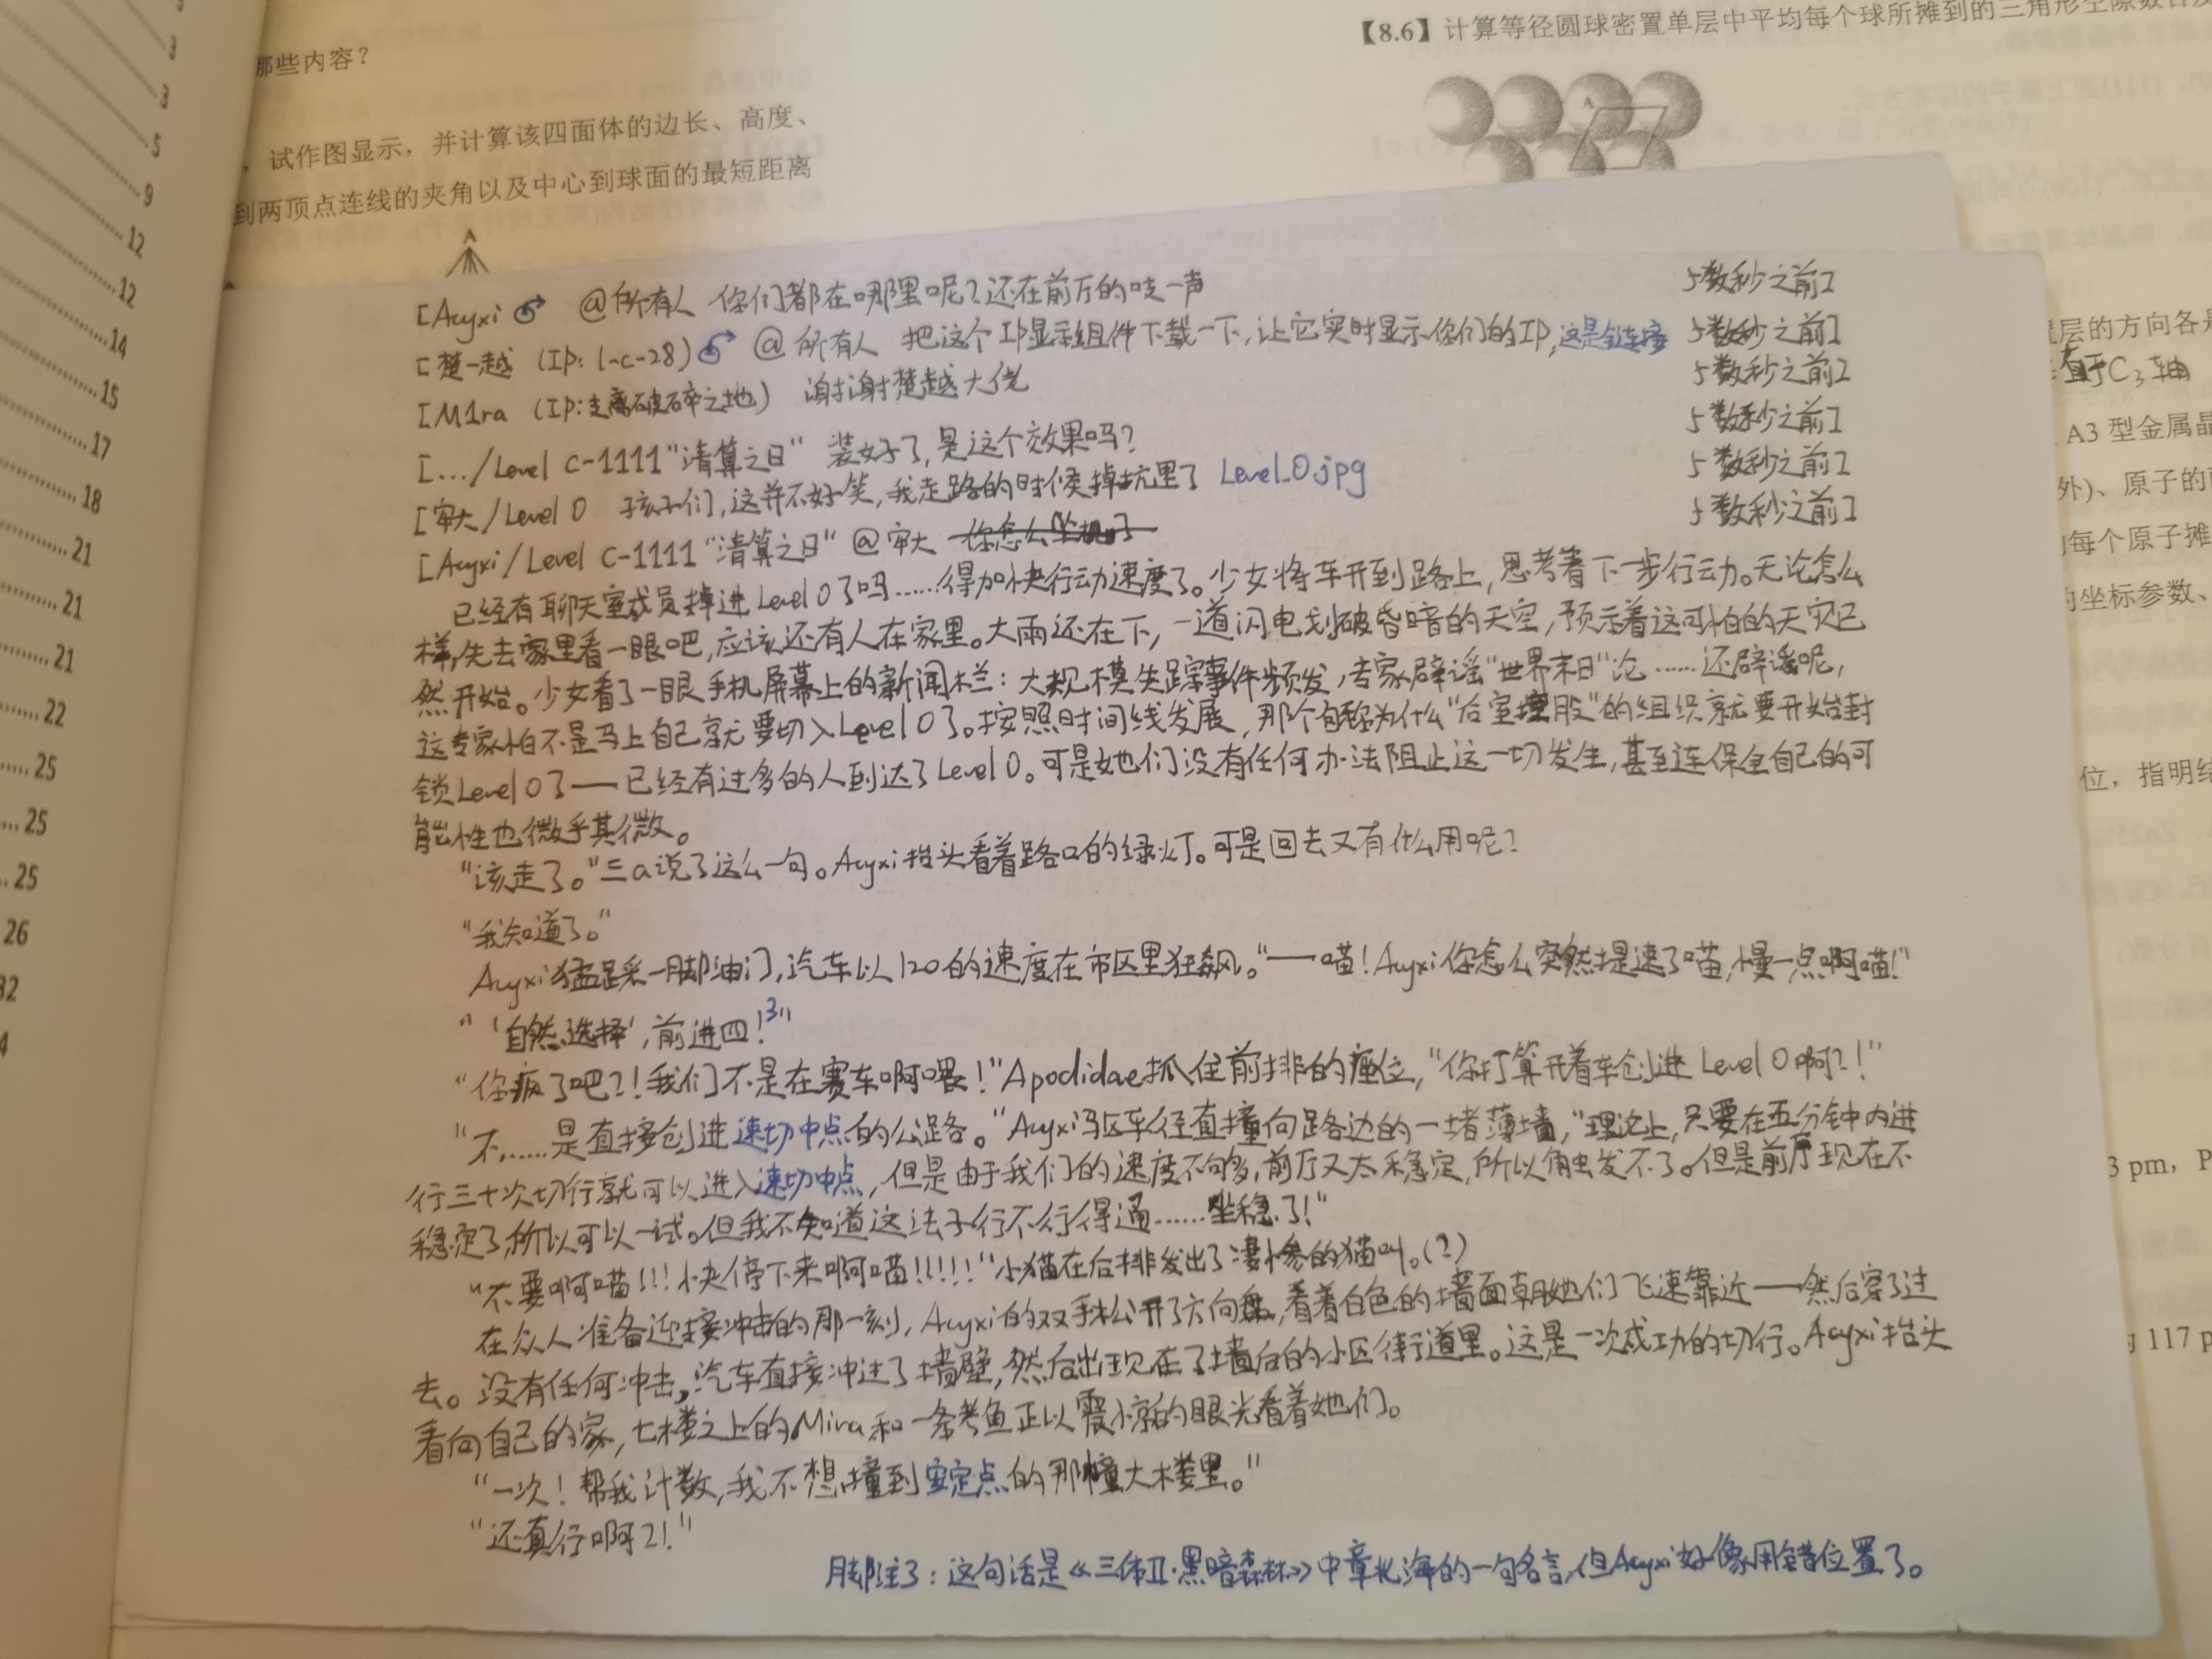 3
3
3
5
9
12
12
14
15
17
18
21
21
21
22
25
25
25
26
32
4
那些内容？
，试作图显示，并计算该四面体的边长、高度、
到两顶点连线的夹角以及中心到球面的最短距离
A
【8.6】计算等径圆球密置单层中平均每个球所摊到的三角形空隙数目及
A
[Acyxi @所有人 你们都在哪里呢？还在前厅的吱一声 数秒之前]
[楚一越 (IP: 1-c-28) @所有人 把这个IP显示组件下载一下，让它实时显示你们的IP，这是链接 数秒之前]
[M1ra (IP:支离破碎之地) 谢谢楚越大佬 数秒之前]
[.../Level C-1111“清算之日” 装好了，是这个效果吗？ 数秒之前]
[牢大/Level 0 孩子们，这并不好笑，我走路的时候掉坑里了 Level_0.jpg 数秒之前]
[Acyxi/Level C-1111“清算之日” @牢大 你怎么坠机了 数秒之前]
已经有聊天室成员掉进Level 0了吗……得加快行动速度了。少女将车开到路上，思考着下一步行动。无论怎么
样，先去家里看一眼吧，应该还有人在家里。大雨还在下，一道闪电划破昏暗的天空，预示着这可怕的天灾已
然开始。少女看了一眼手机屏幕上的新闻栏：大规模失踪事件频发，专家辟谣“世界末日”论……还辟谣呢，
这专家怕不是马上自己就要切入Level 0了。按照时间线发展，那个自称为什么“后室控股”的组织就要开始封
锁Level 0了——已经有过多的人到达了Level 0。可是她们没有任何办法阻止这一切发生，甚至连保全自己的可
能性也微乎其微。
“该走了。”三a说了这么一句。Acyxi抬头看着路口的绿灯。可是回去又有什么用呢？
“我知道了。”
Acyxi猛踩一脚油门，汽车以120的速度在市区里狂飙。“——喵！Acyxi你怎么突然提速了喵，慢一点啊喵！”
“‘自然选择’，前进四！³”
“你疯了吧？！我们不是在赛车啊喂！”Apodidae抓住前排的座位，“你打算开着车创进Level 0啊？！”
“不……是直接创进速切中点的公路。”Acyxi驱车径直撞向路边的一堵薄墙，“理论上，只要在五分钟内进
行三十次切行就可以进入速切中点，但是由于我们的速度不够，前厅又太稳定，所以触发不了。但是前厅现在不
稳定了，所以可以一试。但我不知道这法子行不行得通……坐稳了！”
“不要啊喵！！！快停下来啊喵！！！！！”小猫在后排发出了凄惨的猫叫。（？）
在众人准备迎接冲击的那一刻，Acyxi的双手松开了方向盘，看着白色的墙面朝她们飞速靠近——然后穿了过
去。没有任何冲击，汽车直接冲进了墙壁，然后出现在了墙后的小区街道里。这是一次成功的切行。Acyxi抬头
看向自己的家，七楼之上的Mira和一条考鱼正以震惊的眼光看着她们。
“一次！帮我计数，我不想撞到安定点的那幢大楼里。”
“还真行啊？！”
脚注3：这句话是《三体Ⅱ·黑暗森林》中章北海的一句名言，但Acyxi好像用错位置了。
置层的方向各是
直于C₃轴
A3 型金属晶
外)、原子的
每个原子摊
的坐标参数、
位，指明结
百分数；
3 pm，P
117 p